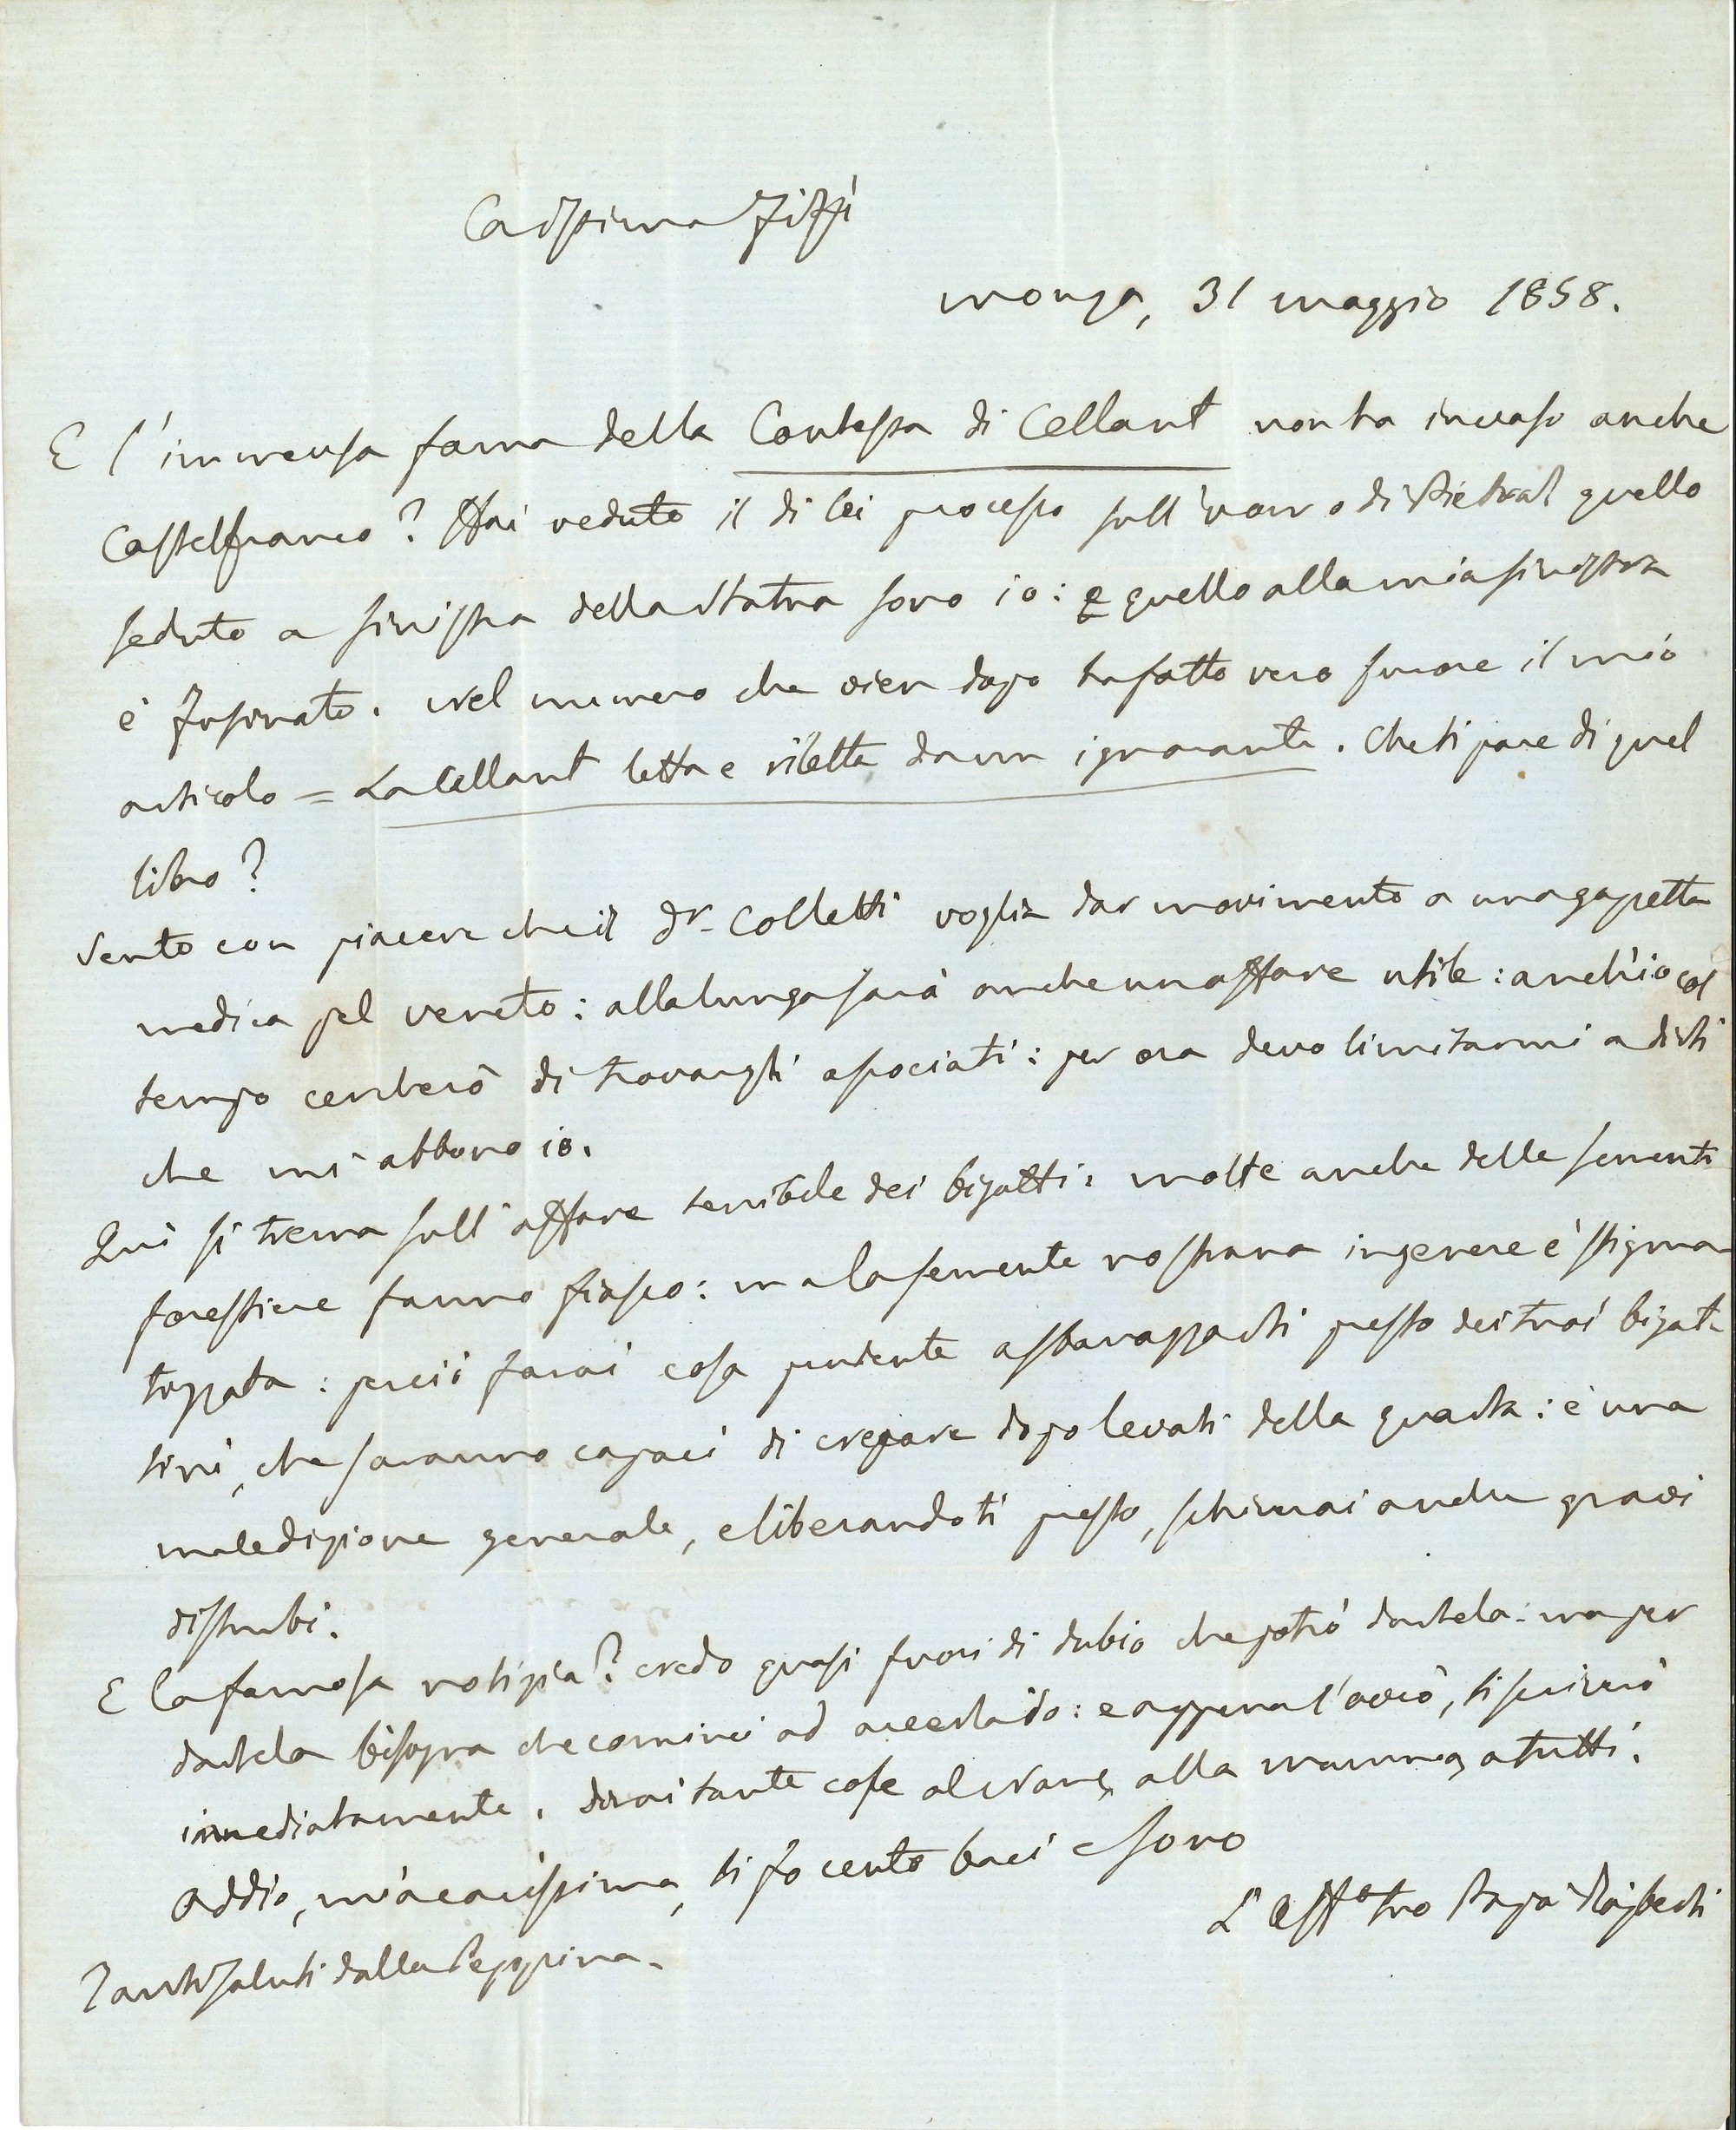 Carissima Fifì
Monza, 31 maggio 1858.
E l'immensa fama della Contessa di Cellant non ha invaso anche
Castelfranco? Hai veduto il di lei processo sull'uomo di Pietra? quello
seduto a sinistra della statua sono io: e quello alla mia sinistra
è Fusinato. Nel numero che vien dopo ha fatto vero furore il mio
articolo = La Cellant letta e riletta da un ignorante. Che ti pare di quel
libro?
Sento con piacere che il Dr. Colletti voglia dar movimento a una gazzetta
medica pel veneto: alla lunga sarà anche un affare utile: anch'io col
tempo cercherò di trovargli associati: per ora devo limitarmi a dirti
che mi abbono io.
Qui si trema sull'affare terribile dei bigatti: molte anche delle sementi
forestiere fanno fiasco: ma la semente nostrana in genere è stigma-
tizzata: perciò farai cosa prudente a sbarazzarti presto dei tuoi bigat-
tini, che saranno capaci di crepare dopo levati della quarta: è una
maledizione generale, e liberandoti presto, schiverai anche gravi
disturbi.
E la famosa notizia? credo quasi fuori di dubio che potrò dartela: ma per
dartela bisogna che cominci ad accertarlo: e appena l'avrò, ti scriverò
immediatamente. Dirai tante cose al Nane, alla mamma, a tutti.
Addio, mia carissima, ti fo cento baci e sono
L'aff.o tuo Papà
Tanti saluti dalla Peppina.